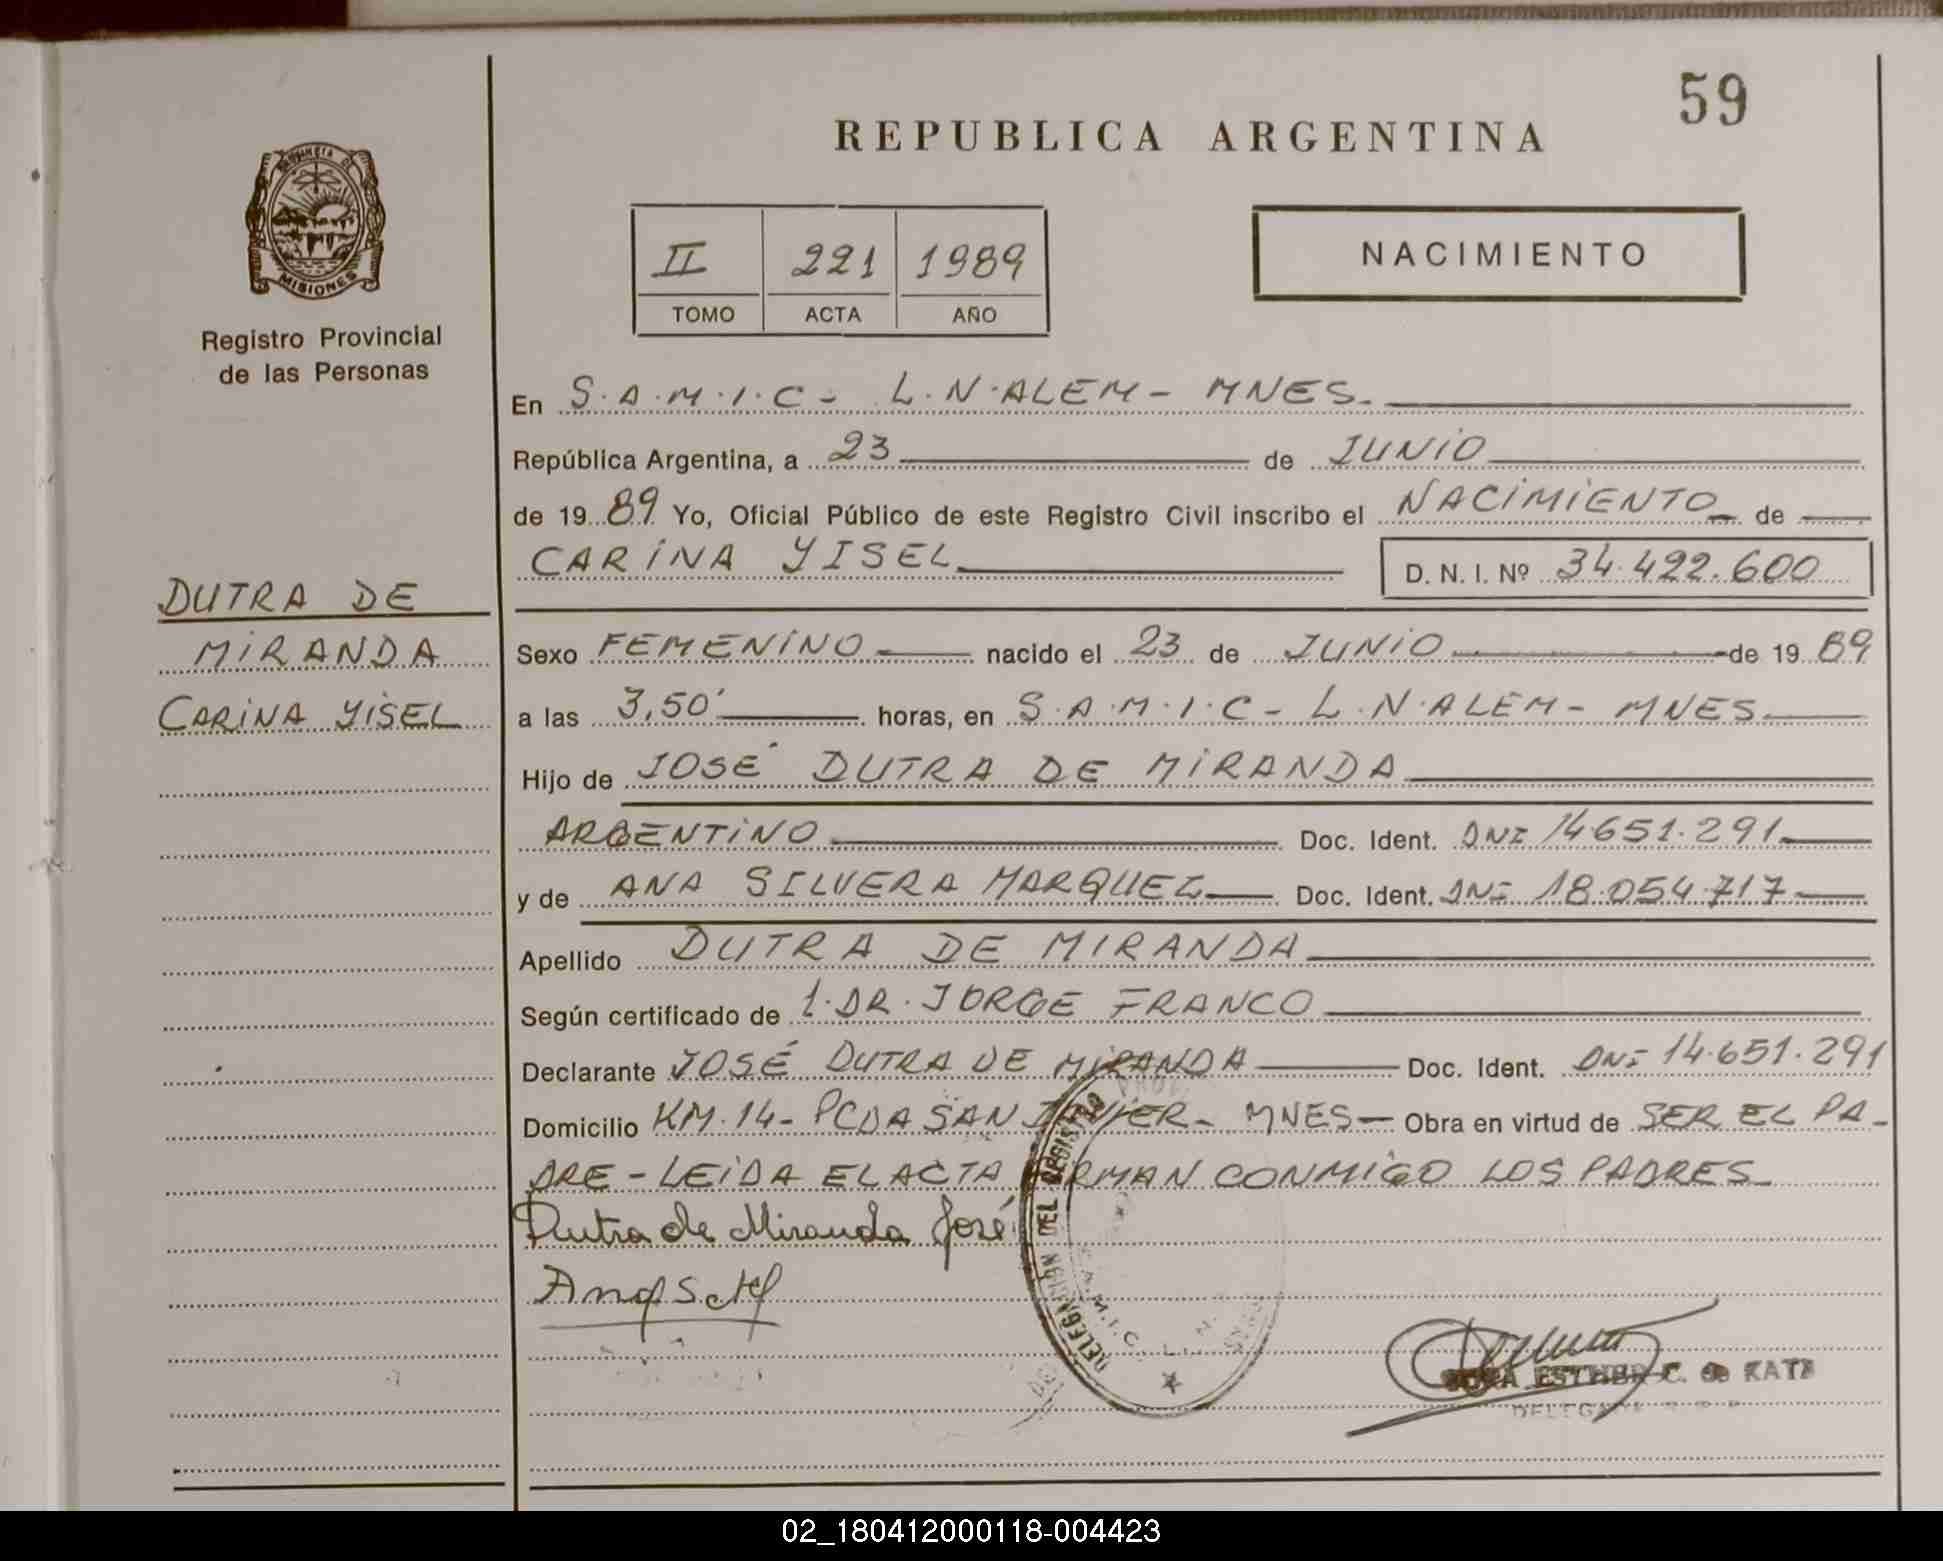 59
REPUBLICA ARGENTINA
PROVINCIA DE
MISIONES
Registro Provincial
de las Personas
II 221 1989
TOMO ACTA AÑO
NACIMIENTO
En S.A.M.I.C- L.N.ALEM- MNES.
República Argentina, a 23 de JUNIO
de 1989 Yo, Oficial Público de este Registro Civil inscribo el NACIMIENTO de
CARINA YISEL D. N. I. Nº 34.422.600
DUTRA DE
MIRANDA
CARINA YISEL
Sexo FEMENINO nacido el 23 de JUNIO de 1989
a las 3,50' horas, en S.A.M.I.C- L.N.ALEM- MNES
Hijo de JOSÉ DUTRA DE MIRANDA
ARGENTINO Doc. Ident. DNI 14.651.291
y de ANA SILVERA MARQUEZ Doc. Ident. DNI 18.054.717
Apellido DUTRA DE MIRANDA
Según certificado de 1.DR.JORGE FRANCO
Declarante JOSÉ DUTRA DE MIRANDA Doc. Ident. DNI 14.651.291
Domicilio KM.14- PCDA SAN JAVIER- MNES- Obra en virtud de SER EL PA-
DRE-LEIDA EL ACTA FIRMAN CONMIGO LOS PADRES
Dutra de Miranda José
Ana S. M
DELEGACION DEL REGISTRO
S.A.M.I.C. L. N.
ESTHER C. de KATZ
DELEGADA
02_180412000118-004423